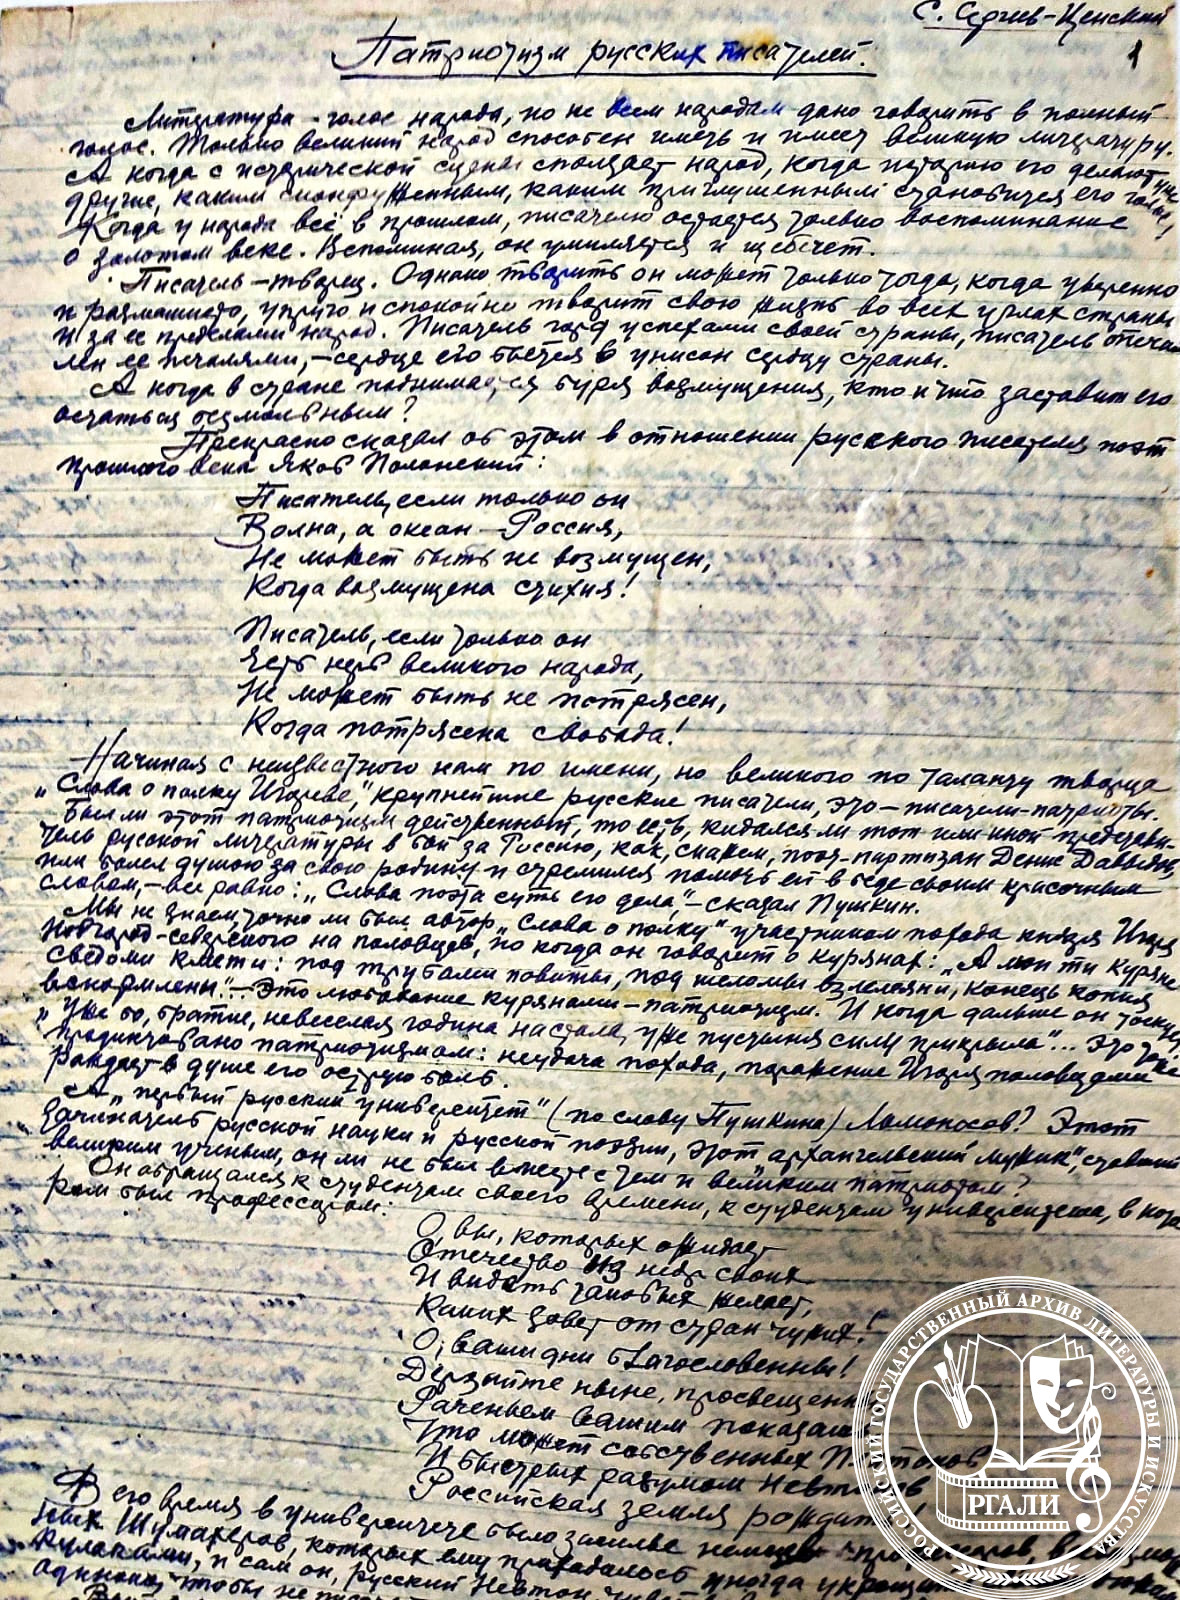 С. Сергеев-Ценский
1
Патриотизм русских писателей.
Литература - голос народа, но не всем народам дано говорить в полный
голос. Только великий народ способен иметь и имеет великую литературу.
А когда с исторической сцены сползает народ, когда историю его делают уже
другие, каким сконфуженным, каким приглушенным становится его голос!
Когда у народа всё в прошлом, писателю остается только воспоминание
о золотом веке. Вспоминая, он умиляется и щебечет.
Писатель - творец. Однако творить он может только тогда, когда уверенно
и размашисто, упруго и спокойно творит свою жизнь во всех углах страны
и за ее пределами народ. Писатель горд успехами своей страны, писатель опеча-
лен ее печалями, - сердце его бьется в унисон сердцу страны.
А когда в стране поднимается буря возмущения, кто и что заставит его
остаться безмолвным?
Прекрасно сказал об этом в отношении русского писателя поэт
прошлого века Яков Полонский:
Писатель, если только он
Волна, а океан - Россия,
Не может быть не возмущен,
Когда возмущена стихия!
Писатель, если только он
Есть нерв великого народа,
Не может быть не потрясен,
Когда потрясена свобода!
Начиная с неизвестного нам по имени, но великого по таланту творца
„Слова о полку Игореве", крупнейшие русские писатели, это - писатели-патриоты.
Был ли этот патриотизм действенный, то есть, кидался ли тот или иной представи-
тель русской литературы в бой за Россию, как, скажем, поэт-партизан Денис Давыдов,
или болел душою за свою родину и стремился помочь ей в беде своим красочным
словом, - все равно: „Слова поэта суть его дела", - сказал Пушкин.
Мы не знаем, точно ли был автор „Слова о полку" участником похода князя Игоря
Новгород-северского на половцев, но когда он говорит о курянах: „А мои ти куряне
сведоми кмети: под трубами повиты, под шеломы взлелеяни, конець копия
вскормлены"... - это любование курянами - патриотизм. И когда дальше он тоскует
„Уже бо, братие, невеселая година настала, уже пустыни силу прикрыла"... это тоже
продиктовано патриотизмом: неудача похода, поражение Игоря половцами
рождает в душе его острую боль.
А „первый русский университет" (по слову Пушкина) Ломоносов? Этот
зачинатель русской науки и русской поэзии, этот „архангельский мужик", ставший
великим ученым, он ли не был вместе с тем и великим патриотом?
Он обращался к студентам своего времени, к студентам университета, в кото-
ром был профессором:
О, вы, которых ожидает
Отечество из недр своих
И видеть таковых желает,
Каких зовет от стран чужих!
О, ваши дни благословенны!
Дерзайте ныне, просвещенн
Раченьем вашим показат
Что может собственных Платонов
И быстрых разумом Невтонов
Российская земля рождать!
В его время в университете было засилье немцев - профессоров,
Шумахеров, которых ему приходилось иногда укрощать
кулаками, и сам он, русский Невтон,
одиноко, чтобы не
РОССИЙСКИЙ ГОСУДАРСТВЕННЫЙ АРХИВ ЛИТЕРАТУРЫ И ИСКУССТВА
РГАЛИ